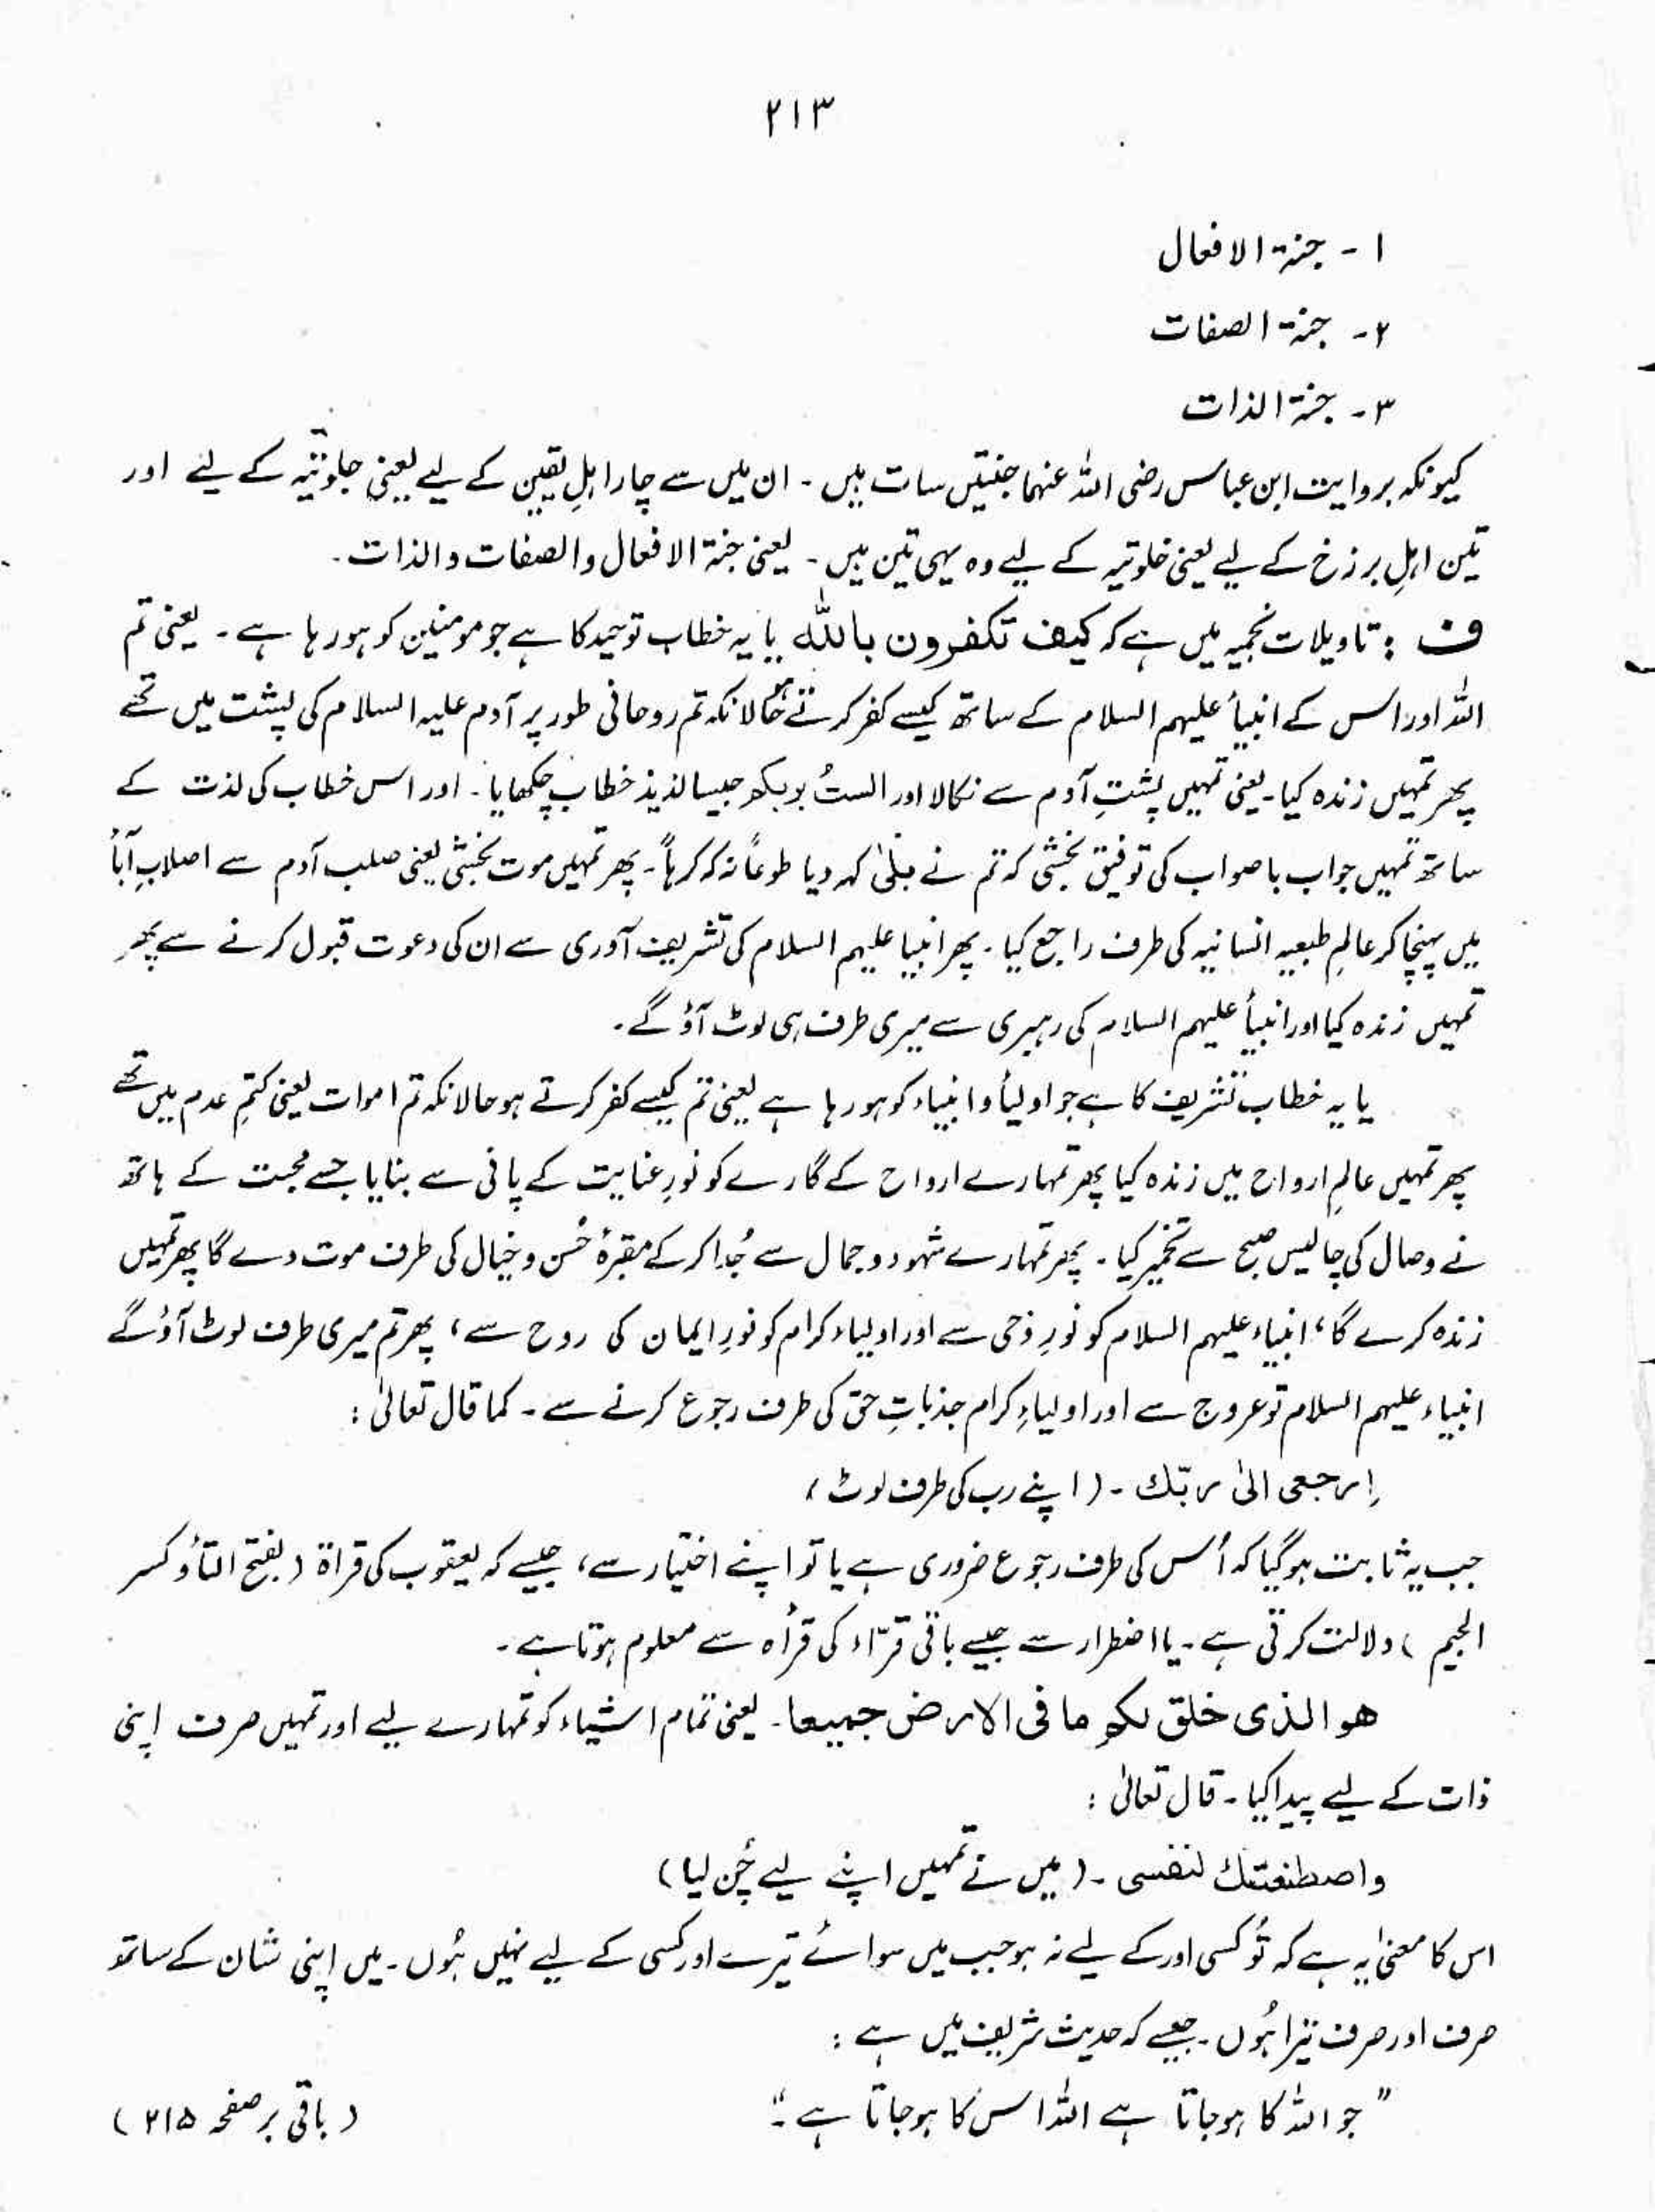 ۲۱۳
۱ - جنۃ الافعال
۲- جنۃ الصفات
۳- جنۃ الذات
کیونکہ بروایت ابن عباس رضی اللہ عنہما جنتیں سات ہیں - ان میں سے چار اہلِ یقین کے لیے یعنی جلوتیہ کے لیے اور
تین اہلِ برزخ کے لیے یعنی خلوتیہ کے لیے وہ یہی تین ہیں - یعنی جنۃ الافعال والصفات والذات -
ف : تاویلات نجمیہ میں ہے کہ کیف تکفرون باللہ یا یہ خطاب توحید کا ہے جو مومنین کو ہو رہا ہے - یعنی تم
اللہ اور اس کے انبیأ علیہم السلام کے ساتھ کیسے کفر کرتے ہو حالانکہ تم روحانی طور پر آدم علیہ السلام کی پشت میں تھے
پھر تمہیں زندہ کیا - یعنی تمہیں پشتِ آدم سے نکالا اور الستُ بربکم جیسا لذیذ خطاب چکھایا - اور اس خطاب کی لذت کے
ساتھ تمہیں جواب باصواب کی توفیق بخشی کہ تم نے بلیٰ کہہ دیا طوعاً نہ کہ کرہاً - پھر تمہیں موت بخشی یعنی صلب آدم سے اصلابِ آبأ
میں پہنچا کر عالمِ طبعیہ انسانیہ کی طرف راجع کیا - پھر انبیا علیہم السلام کی تشریف آوری سے ان کی دعوت قبول کرنے سے پھر
تمہیں زندہ کیا اور انبیأ علیہم السلام کی رہبری سے میری طرف ہی لوٹ آؤ گے -
یا یہ خطاب تشریف کا ہے جو اولیأ و انبیاء کو ہو رہا ہے یعنی تم کیسے کفر کرتے ہو حالانکہ تم اموات یعنی کتمِ عدم میں تھے
پھر تمہیں عالمِ ارواح میں زندہ کیا پھر تمہارے ارواح کے گارے کو نورِ عنایت کے پانی سے بنایا جسے محبت کے ہاتھ
نے وصال کی چالیس صبح سے تخمیر کیا - پھر تمہارے شہود و جمال سے جُدا کر کے مقبرۂ حُسن و خیال کی طرف موت دے گا پھر تمہیں
زندہ کرے گا، انبیاء علیہم السلام کو نورِ وَحی سے اور اولیاء کرام کو نورِ ایمان کی روح سے، پھر تم میری طرف لوٹ آؤ گے
انبیاء علیہم السلام تو عروج سے اور اولیاءِ کرام جذباتِ حق کی طرف رجوع کرنے سے - کما قال تعالیٰ :
اِرجعی الیٰ ربّك - ( اپنے رب کی طرف لوٹ )
جب یہ ثابت ہو گیا کہ اُس کی طرف رجوع ضروری ہے یا تو اپنے اختیار سے، جیسے کہ یعقوب کی قراۃ ( بفتح التأ و کسر
الجیم ) دلالت کرتی ہے - یا اضطرار سے جیسے باقی قرّاء کی قرأہ سے معلوم ہوتا ہے -
ھو الذی خلق لکم ما فی الارض جمیعا - یعنی تمام اشیاء کو تمہارے لیے اور تمہیں صرف اپنی
ذات کے لیے پیدا کیا - قال تعالیٰ :
واصطنعتك لنفسی - ( میں نے تمہیں اپنے لیے چُن لیا )
اس کا معنیٰ یہ ہے کہ تُو کسی اور کے لیے نہ ہو جب میں سوائے تیرے اور کسی کے لیے نہیں ہُوں - میں اپنی شان کے ساتھ
صرف اور صرف تیرا ہُوں - جیسے کہ حدیث شریف میں ہے :
" جو اللہ کا ہو جاتا ہے اللہ اس کا ہو جاتا ہے "
( باقی بر صفحہ ۲۱۵ )